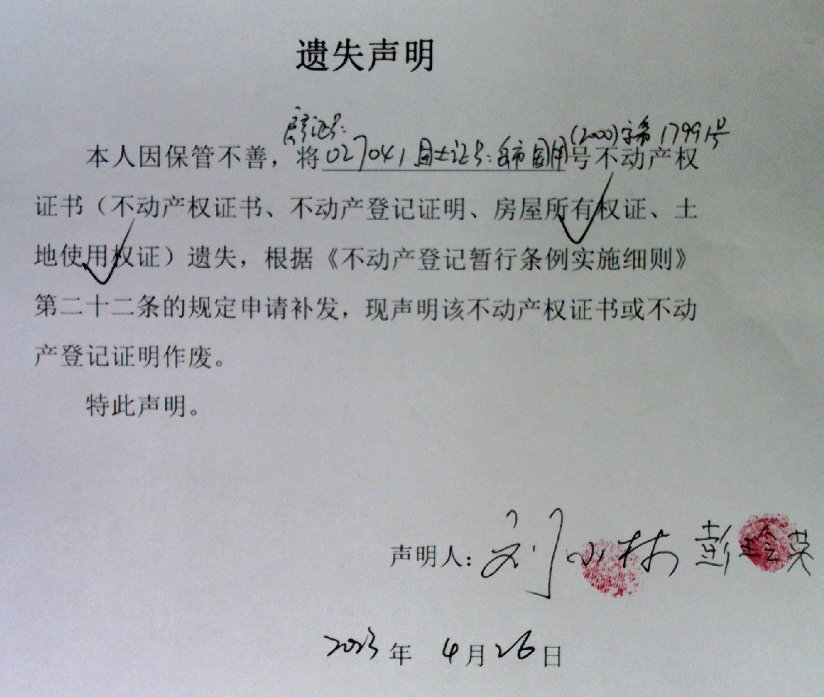 遗失声明
房产证号:
本人因保管不善，将027041国土证号: 市国用(2000)字第17991号号不动产权
证书（不动产权证书、不动产登记证明、房屋所有权证、土
地使用权证）遗失，根据《不动产登记暂行条例实施细则》
第二十二条的规定申请补发，现声明该不动产权证书或不动
产登记证明作废。
特此声明。
声明人：刘小林 彭玲英
2023年 4月26日